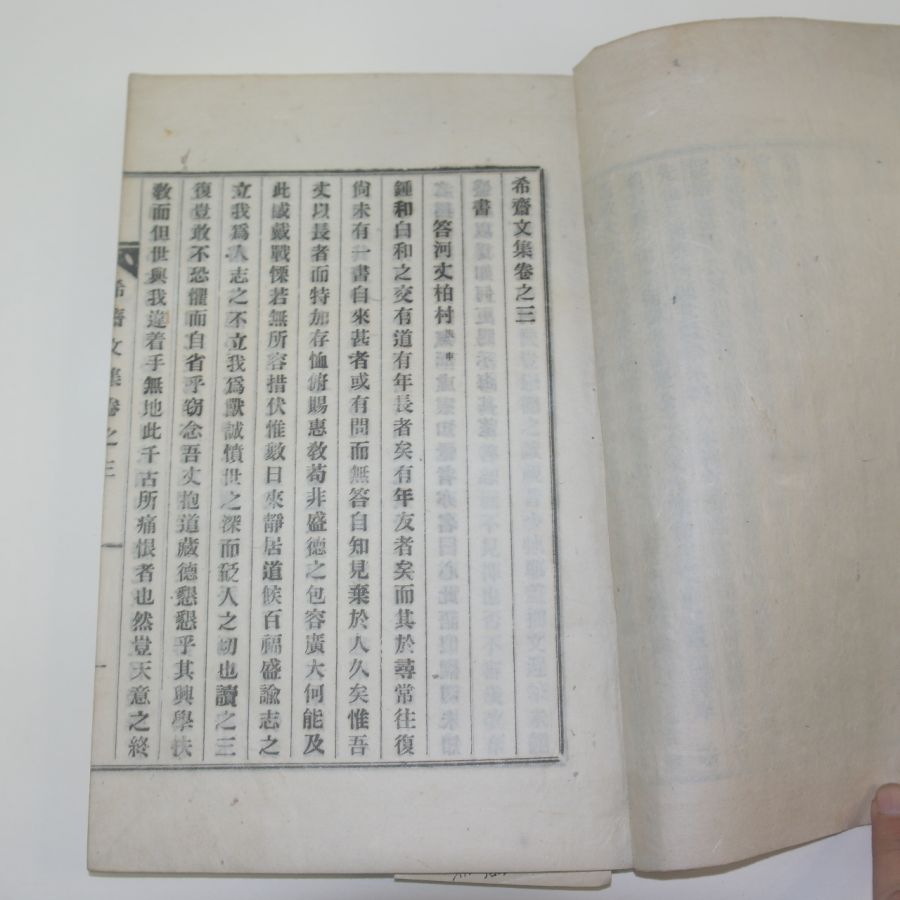 希齋文集卷之三
書
答河丈柏村
鍾和白和之交有道有年長者矣有年友者矣而其於尋常往復
尙未有一書自來甚者或有問而無答自知見棄於人久矣惟吾
丈以長者而特加存恤俯賜惠敎苟非盛德之包容廣大何能及
此感戴戰慄若無所容措伏惟數日來靜居道候百福盛諭志之
立我爲人志之不立我爲獸誠憤世之深而砭人之切也讀之三
復豈敢不恐懼而自省乎窃念吾丈抱道藏德懇懇乎其興學扶
敎而但世與我違着手無地此千古所痛恨者也然豈天意之終
希齋文集卷之三 一